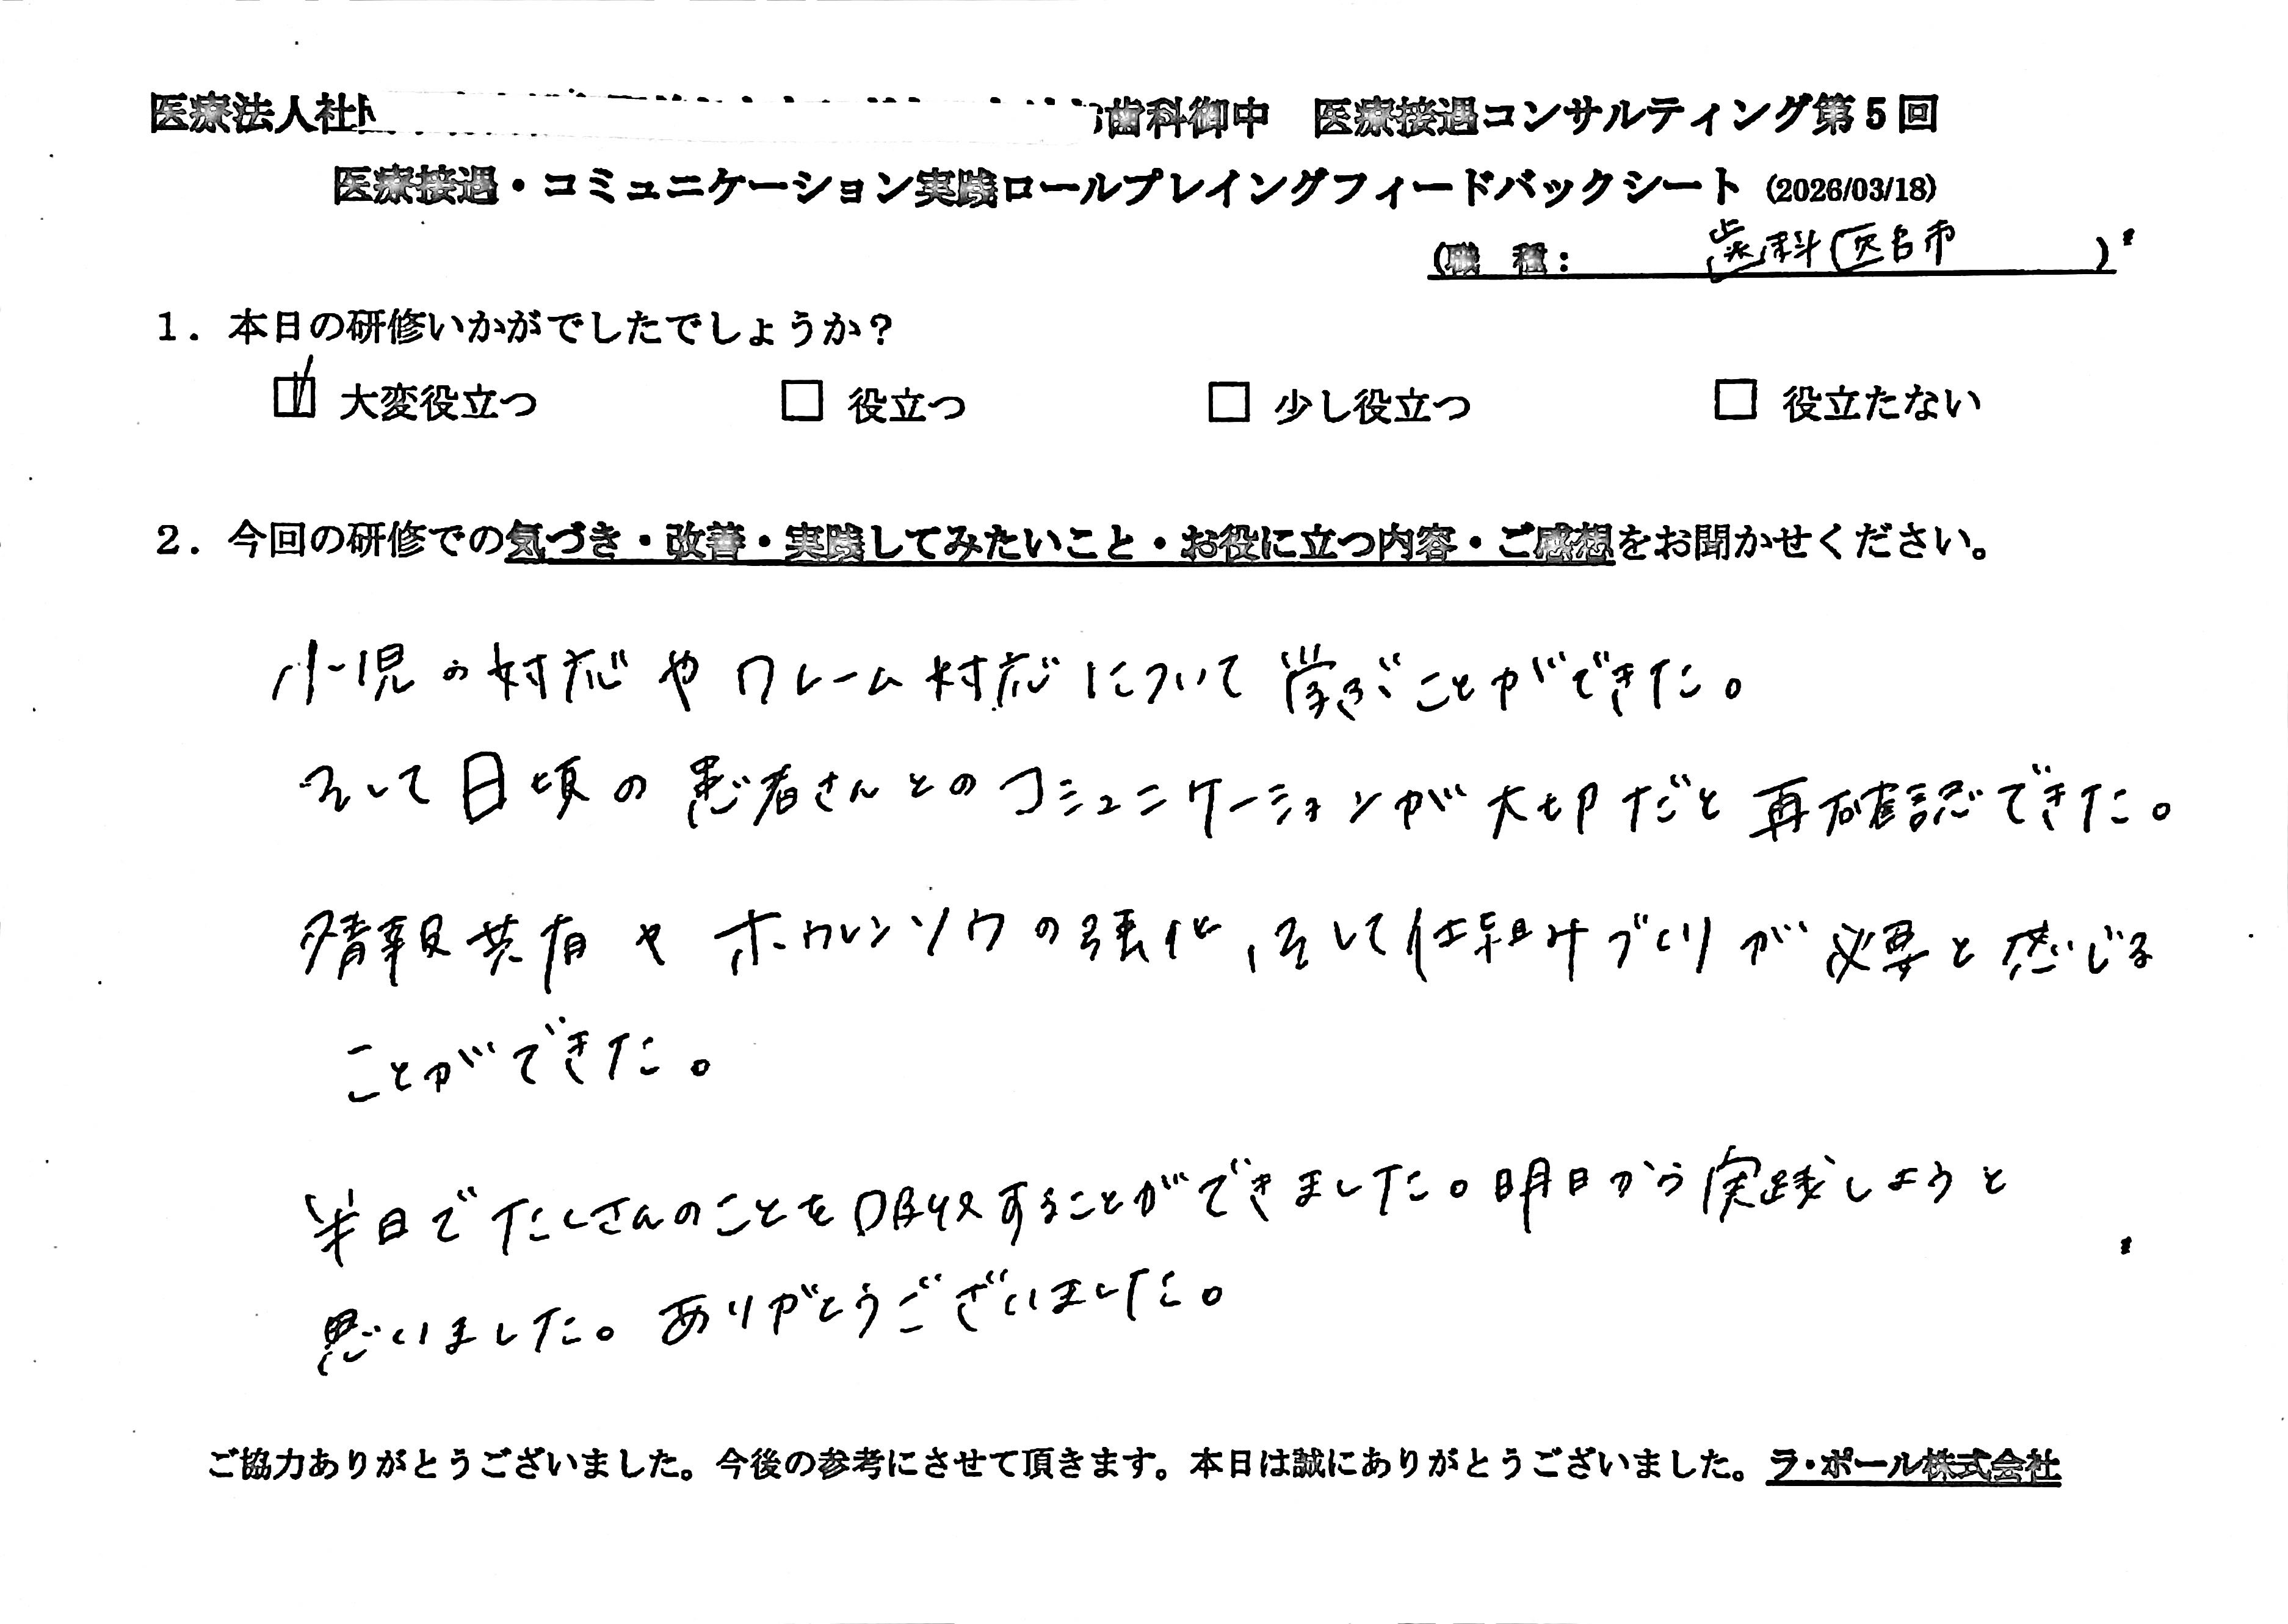 医療法人社 歯科御中 医療接遇コンサルティング第5回
医療接遇・コミュニケーション実践ロールプレイングフィードバックシート (2026/03/18)
(職 種: 歯科医師 )
1. 本日の研修いかがでしたでしょうか?
☑ 大変役立つ □ 役立つ □ 少し役立つ □ 役立たない
2. 今回の研修での気づき・改善・実践してみたいこと・お役に立つ内容・ご感想をお聞かせください。
小児の対応やクレーム対応について学ぶことができた。
そして日頃の患者さんとのコミュニケーションが大切だと再確認できた。
情報共有やホウレンソウの強化、そして仕組みづくりが必要と感じる
ことができた。
半日でたくさんのことを吸収することができました。明日から実践しようと
思いました。ありがとうございました。
ご協力ありがとうございました。今後の参考にさせて頂きます。本日は誠にありがとうございました。ラ・ポール株式会社